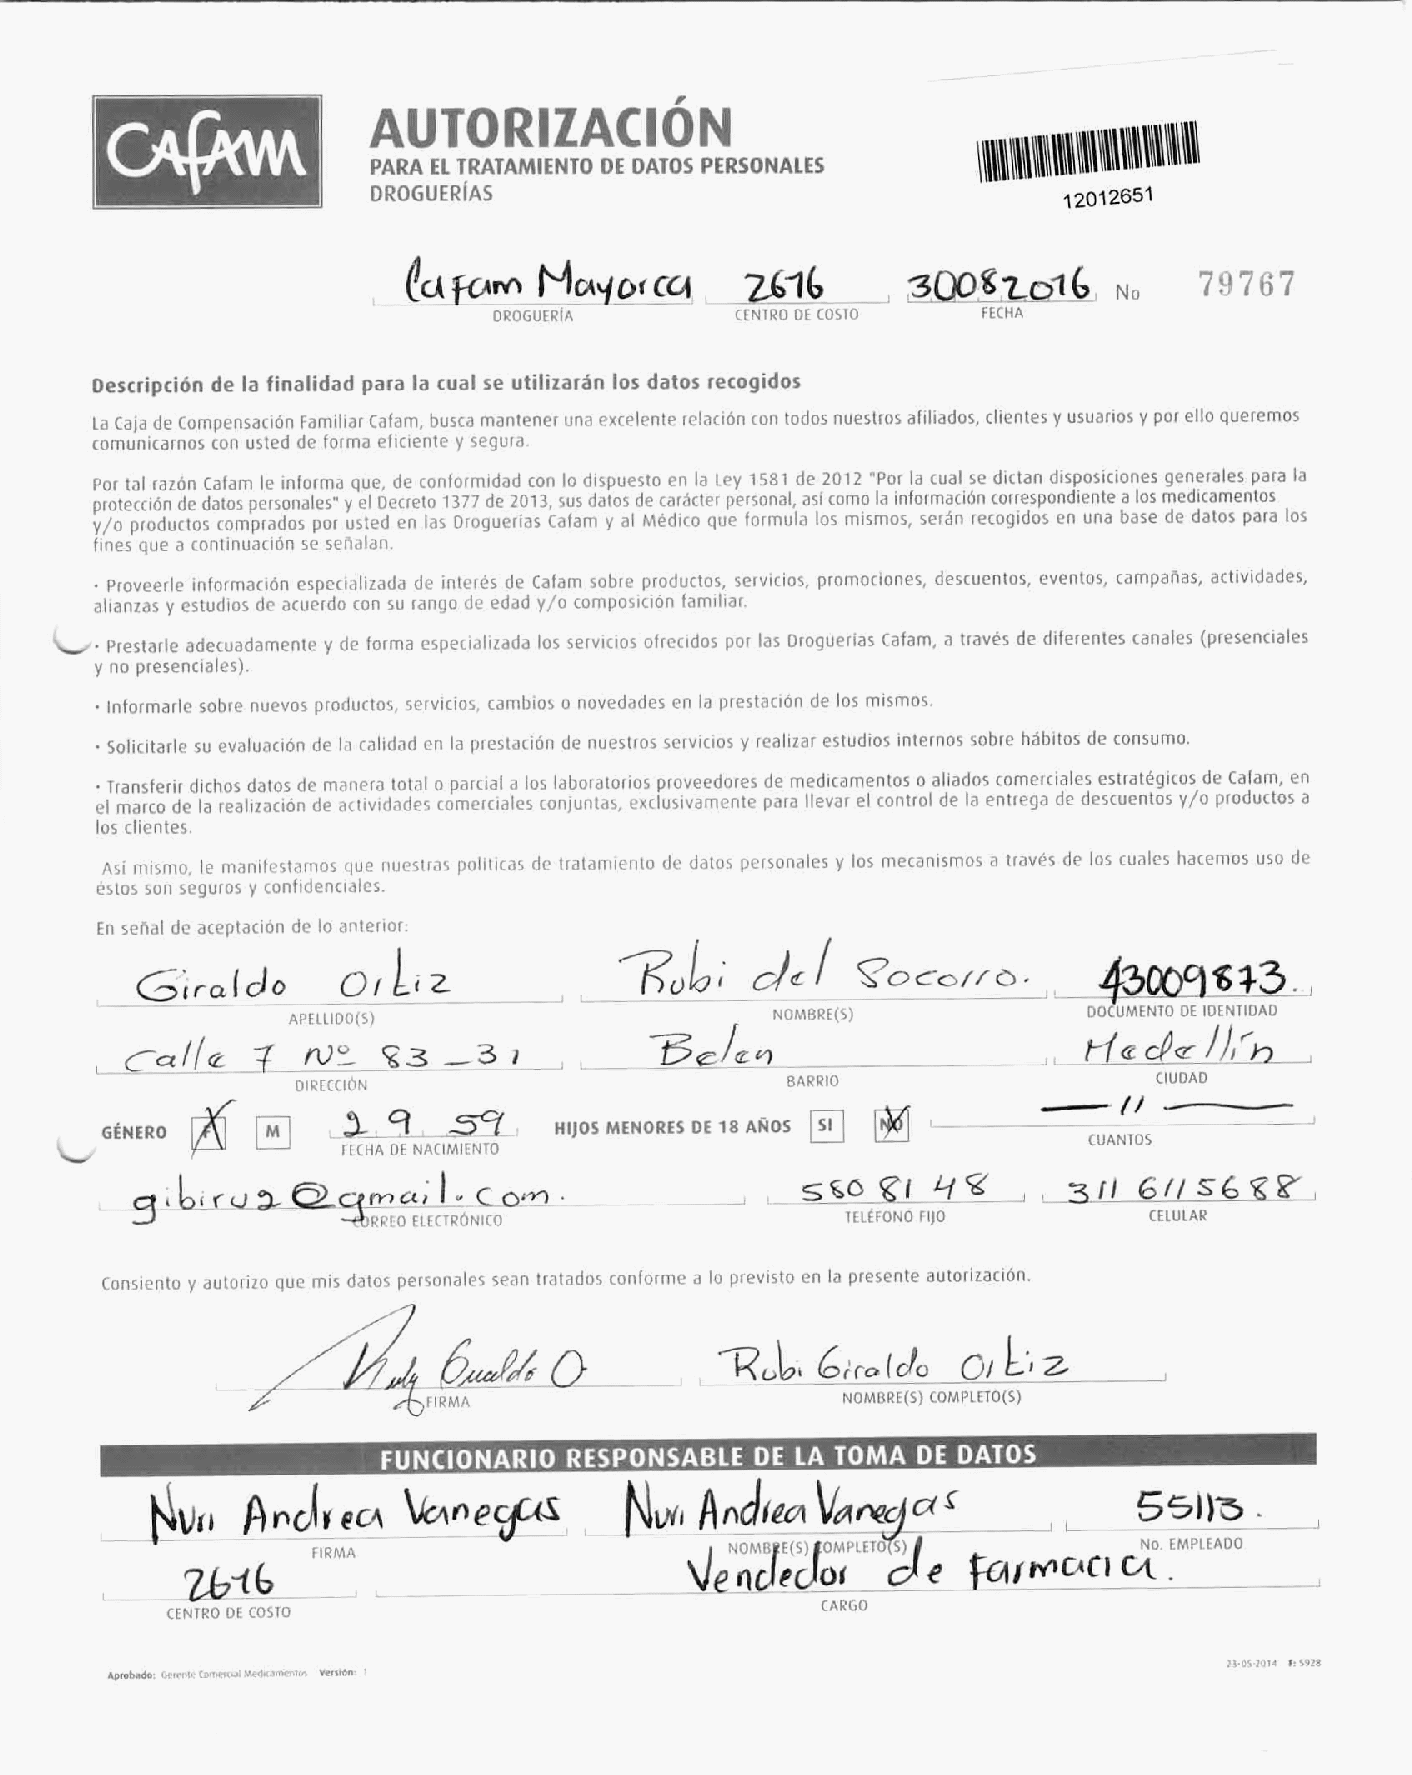 CAFAM
AUTORIZACIÓN
PARA EL TRATAMIENTO DE DATOS PERSONALES
DROGUERÍAS
12012651
Cafam Mayorca 2616 30082016 No 79767
DROGUERÍA CENTRO DE COSTO FECHA
Descripción de la finalidad para la cual se utilizarán los datos recogidos
La Caja de Compensación Familiar Cafam, busca mantener una excelente relación con todos nuestros afiliados, clientes y usuarios y por ello queremos
comunicarnos con usted de forma eficiente y segura.
Por tal razón Cafam le informa que, de conformidad con lo dispuesto en la Ley 1581 de 2012 "Por la cual se dictan disposiciones generales para la
protección de datos personales" y el Decreto 1377 de 2013, sus datos de carácter personal, así como la información correspondiente a los medicamentos
y/o productos comprados por usted en las Droguerías Cafam y al Médico que formula los mismos, serán recogidos en una base de datos para los
fines que a continuación se señalan.
· Proveerle información especializada de interés de Cafam sobre productos, servicios, promociones, descuentos, eventos, campañas, actividades,
alianzas y estudios de acuerdo con su rango de edad y/o composición familiar.
· Prestarle adecuadamente y de forma especializada los servicios ofrecidos por las Droguerías Cafam, a través de diferentes canales (presenciales
y no presenciales).
· Informarle sobre nuevos productos, servicios, cambios o novedades en la prestación de los mismos.
· Solicitarle su evaluación de la calidad en la prestación de nuestros servicios y realizar estudios internos sobre hábitos de consumo.
· Transferir dichos datos de manera total o parcial a los laboratorios proveedores de medicamentos o aliados comerciales estratégicos de Cafam, en
el marco de la realización de actividades comerciales conjuntas, exclusivamente para llevar el control de la entrega de descuentos y/o productos a
los clientes.
Así mismo, le manifestamos que nuestras políticas de tratamiento de datos personales y los mecanismos a través de los cuales hacemos uso de
éstos son seguros y confidenciales.
En señal de aceptación de lo anterior:
Giraldo Ortiz Rubi del Socorro. 43009873.
APELLIDO(S) NOMBRE(S) DOCUMENTO DE IDENTIDAD
Calle 7 Nº 83-31 Belen Medellín
DIRECCIÓN BARRIO CIUDAD
GÉNERO F M 2 9 59 HIJOS MENORES DE 18 AÑOS SI NO — 11 —
FECHA DE NACIMIENTO CUANTOS
gibiru2@gmail.com. 580 81 48 311 6115688
CORREO ELECTRÓNICO TELÉFONO FIJO CELULAR
Consiento y autorizo que mis datos personales sean tratados conforme a lo previsto en la presente autorización.
Giraldo O Rubi Giraldo Ortiz
FIRMA NOMBRE(S) COMPLETO(S)
FUNCIONARIO RESPONSABLE DE LA TOMA DE DATOS
Nuri Andrea Vanegas Nuri Andrea Vanegas 55113.
FIRMA NOMBRE(S) COMPLETO(S) No. EMPLEADO
2616 Vendedor de farmacia.
CENTRO DE COSTO CARGO
Aprobado: Gerente Comercial Medicamentos Versión: 1 23-05-2014 F: 5928